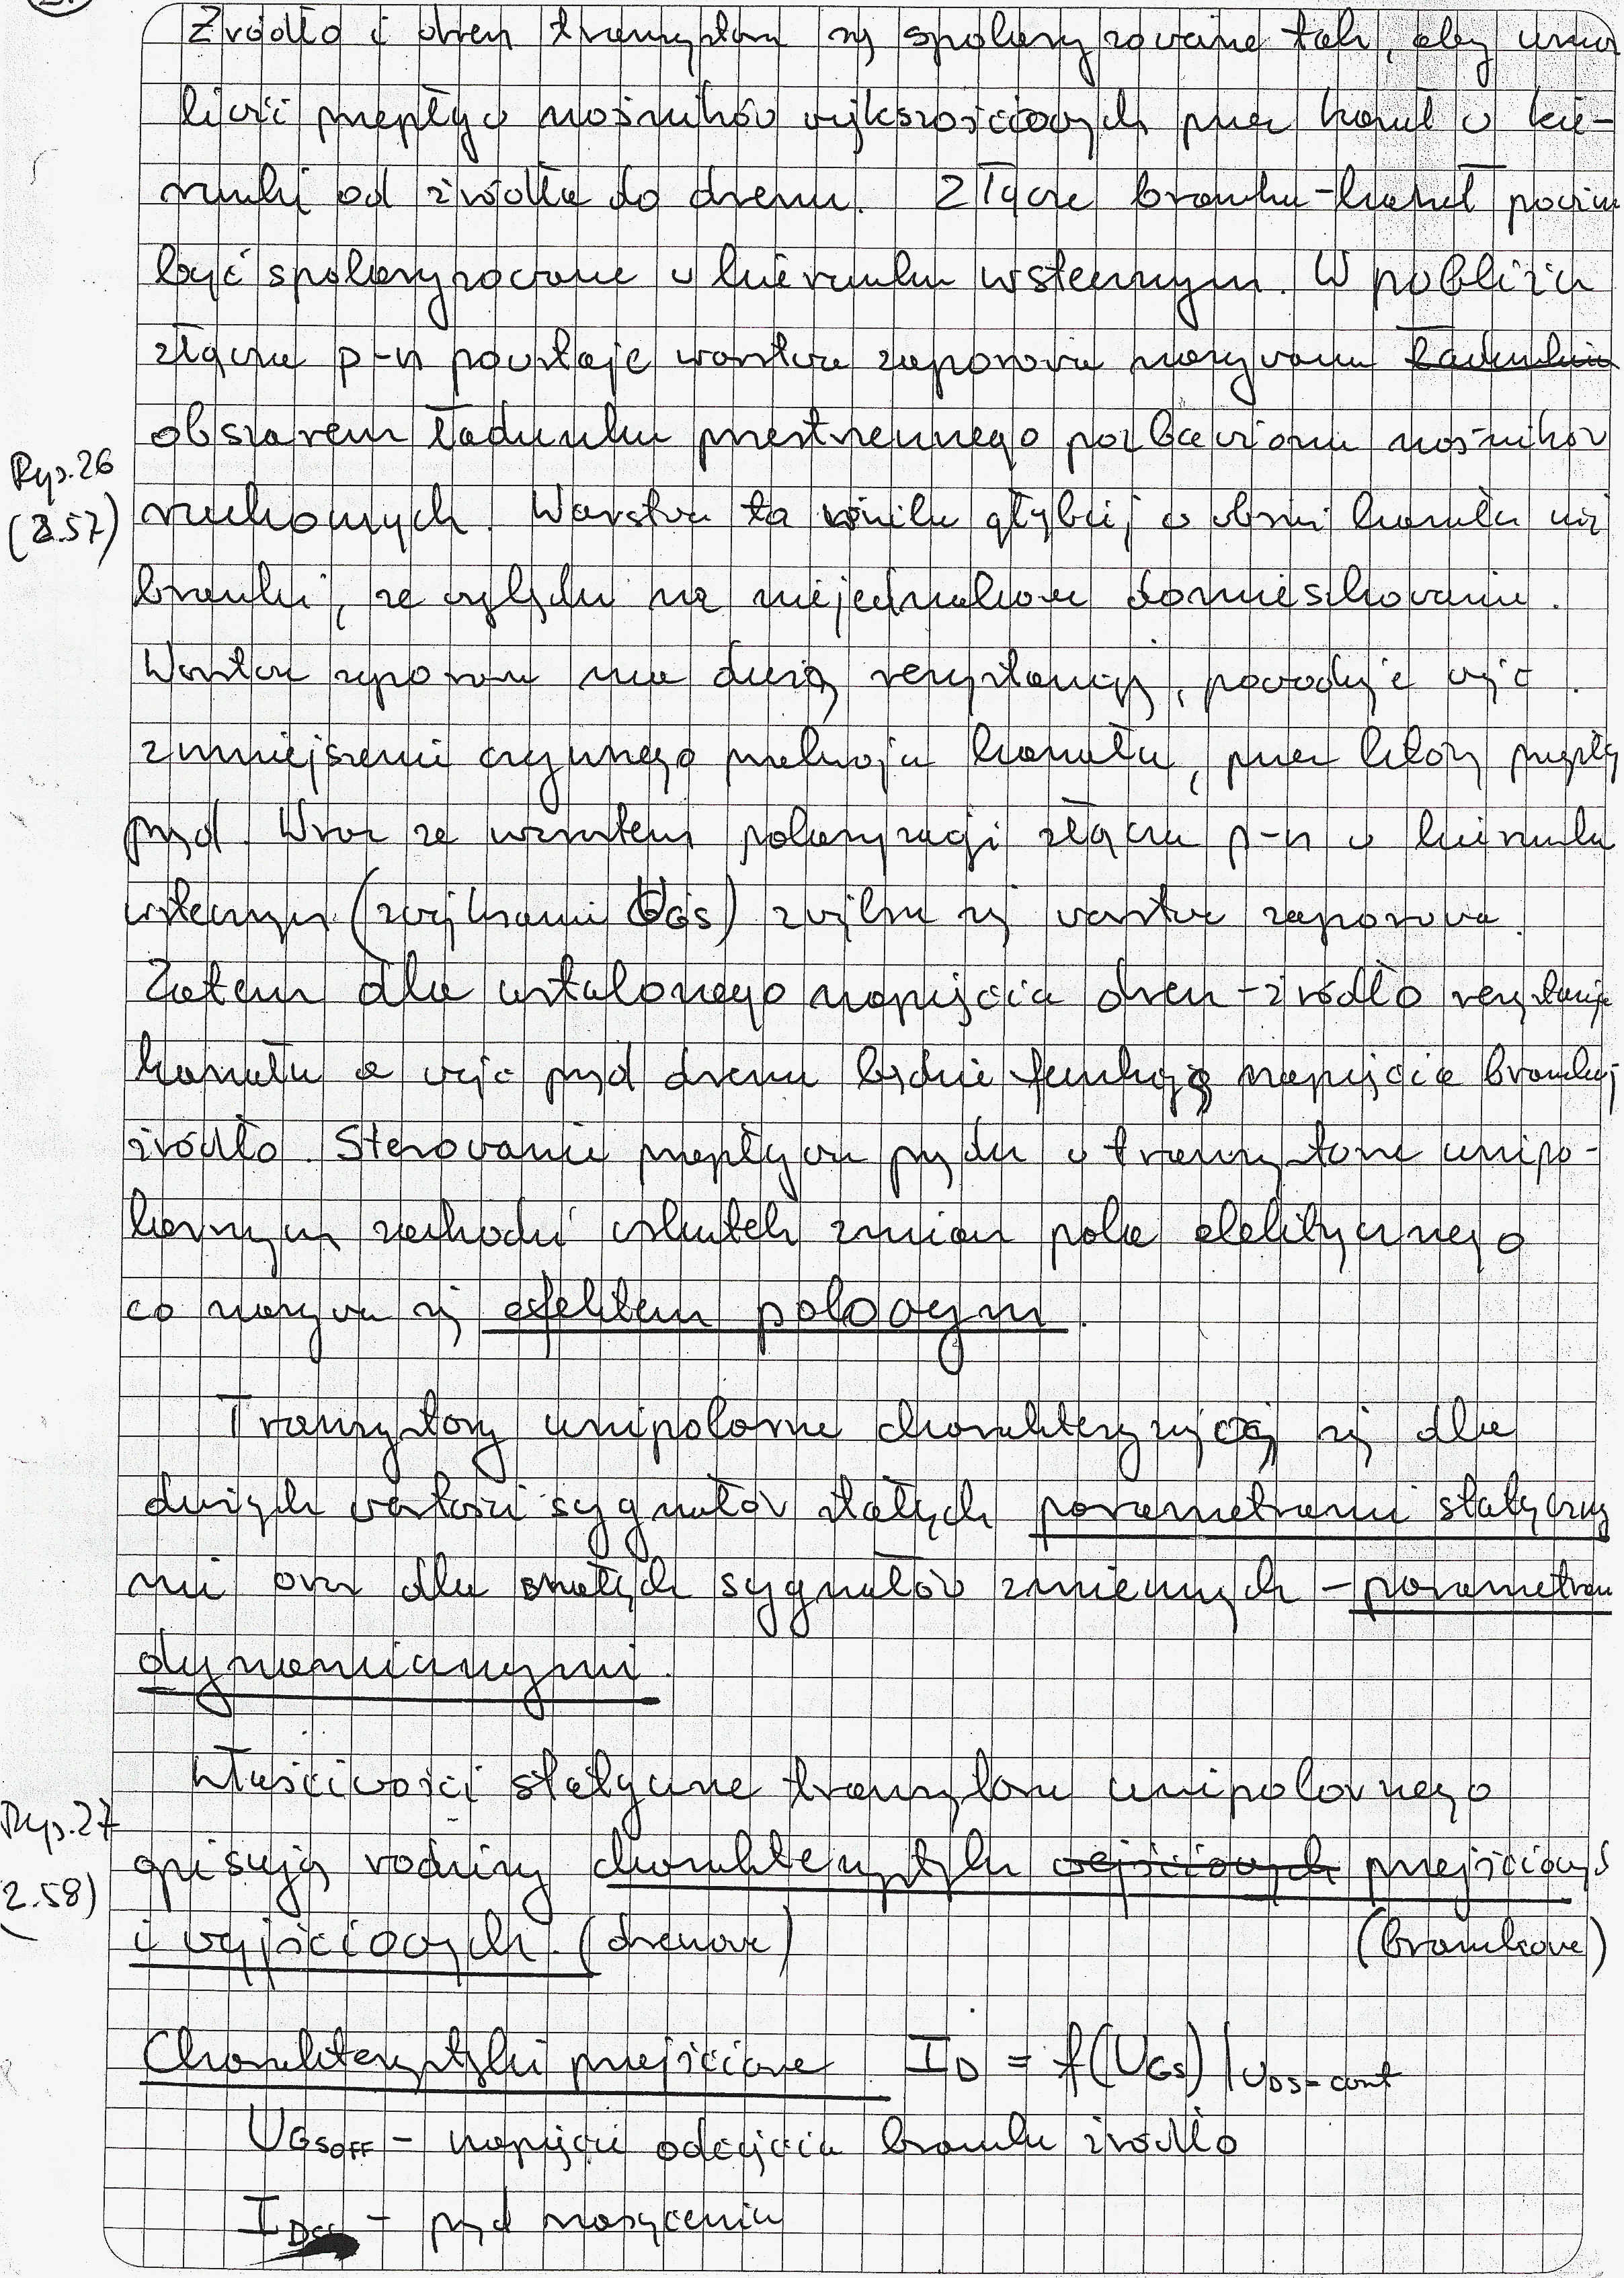 Źródło i dren tranzystora są spolaryzowane tak, aby umoż
liwić przepływ nośników większościowych przez kanał w kie-
runku od źródła do drenu. Złącze bramka-kanał powinno
być spolaryzowane w kierunku wstecznym. W pobliżu
złącza p-n powstaje warstwa zaporowa nazywana
obszarem ładunku przestrzennego pozbawiona nośników
Rys. 26
(2.57)
ruchomych. Warstwa ta wnika głębiej w obszar kanału niż
bramki, ze względu na niejednakowe domieszkowanie.
Warstwa zaporowa ma dużą rezystancję, powoduje więc
zmniejszenie czynnego przekroju kanału, przez który przepły
prąd. Wraz ze wzrostem polaryzacji złącza p-n w kierunku
wstecznym (zwiększanie UGS) zwiększa się warstwa zaporowa.
Zatem dla ustalonego napięcia dren-źródło rezystancja
kanału a więc prąd drenu będzie funkcją napięcia bramka
źródło. Sterowanie przepływu prądu w tranzystorze unipo-
larnym zachodzi wskutek zmian pola elektrycznego
co nazywa się efektem polowym.
Tranzystory unipolarne charakteryzują się dla
dużych wartości sygnałów stałych parametrami statyczny
mi oraz dla małych sygnałów zmiennych - parametrami
dynamicznymi.
Właściwości statyczne tranzystora unipolarnego
Rys. 27
(2.58)
opisują rodziny charakterystyk wejściowych przejściowych
i wyjściowych. (drenowe) (bramkowe)
Charakterystyki przejściowe ID = f(UGS) | UDS = const
UGSOFF - napięcie odcięcia bramka źródło
IDSS - prąd nasycenia